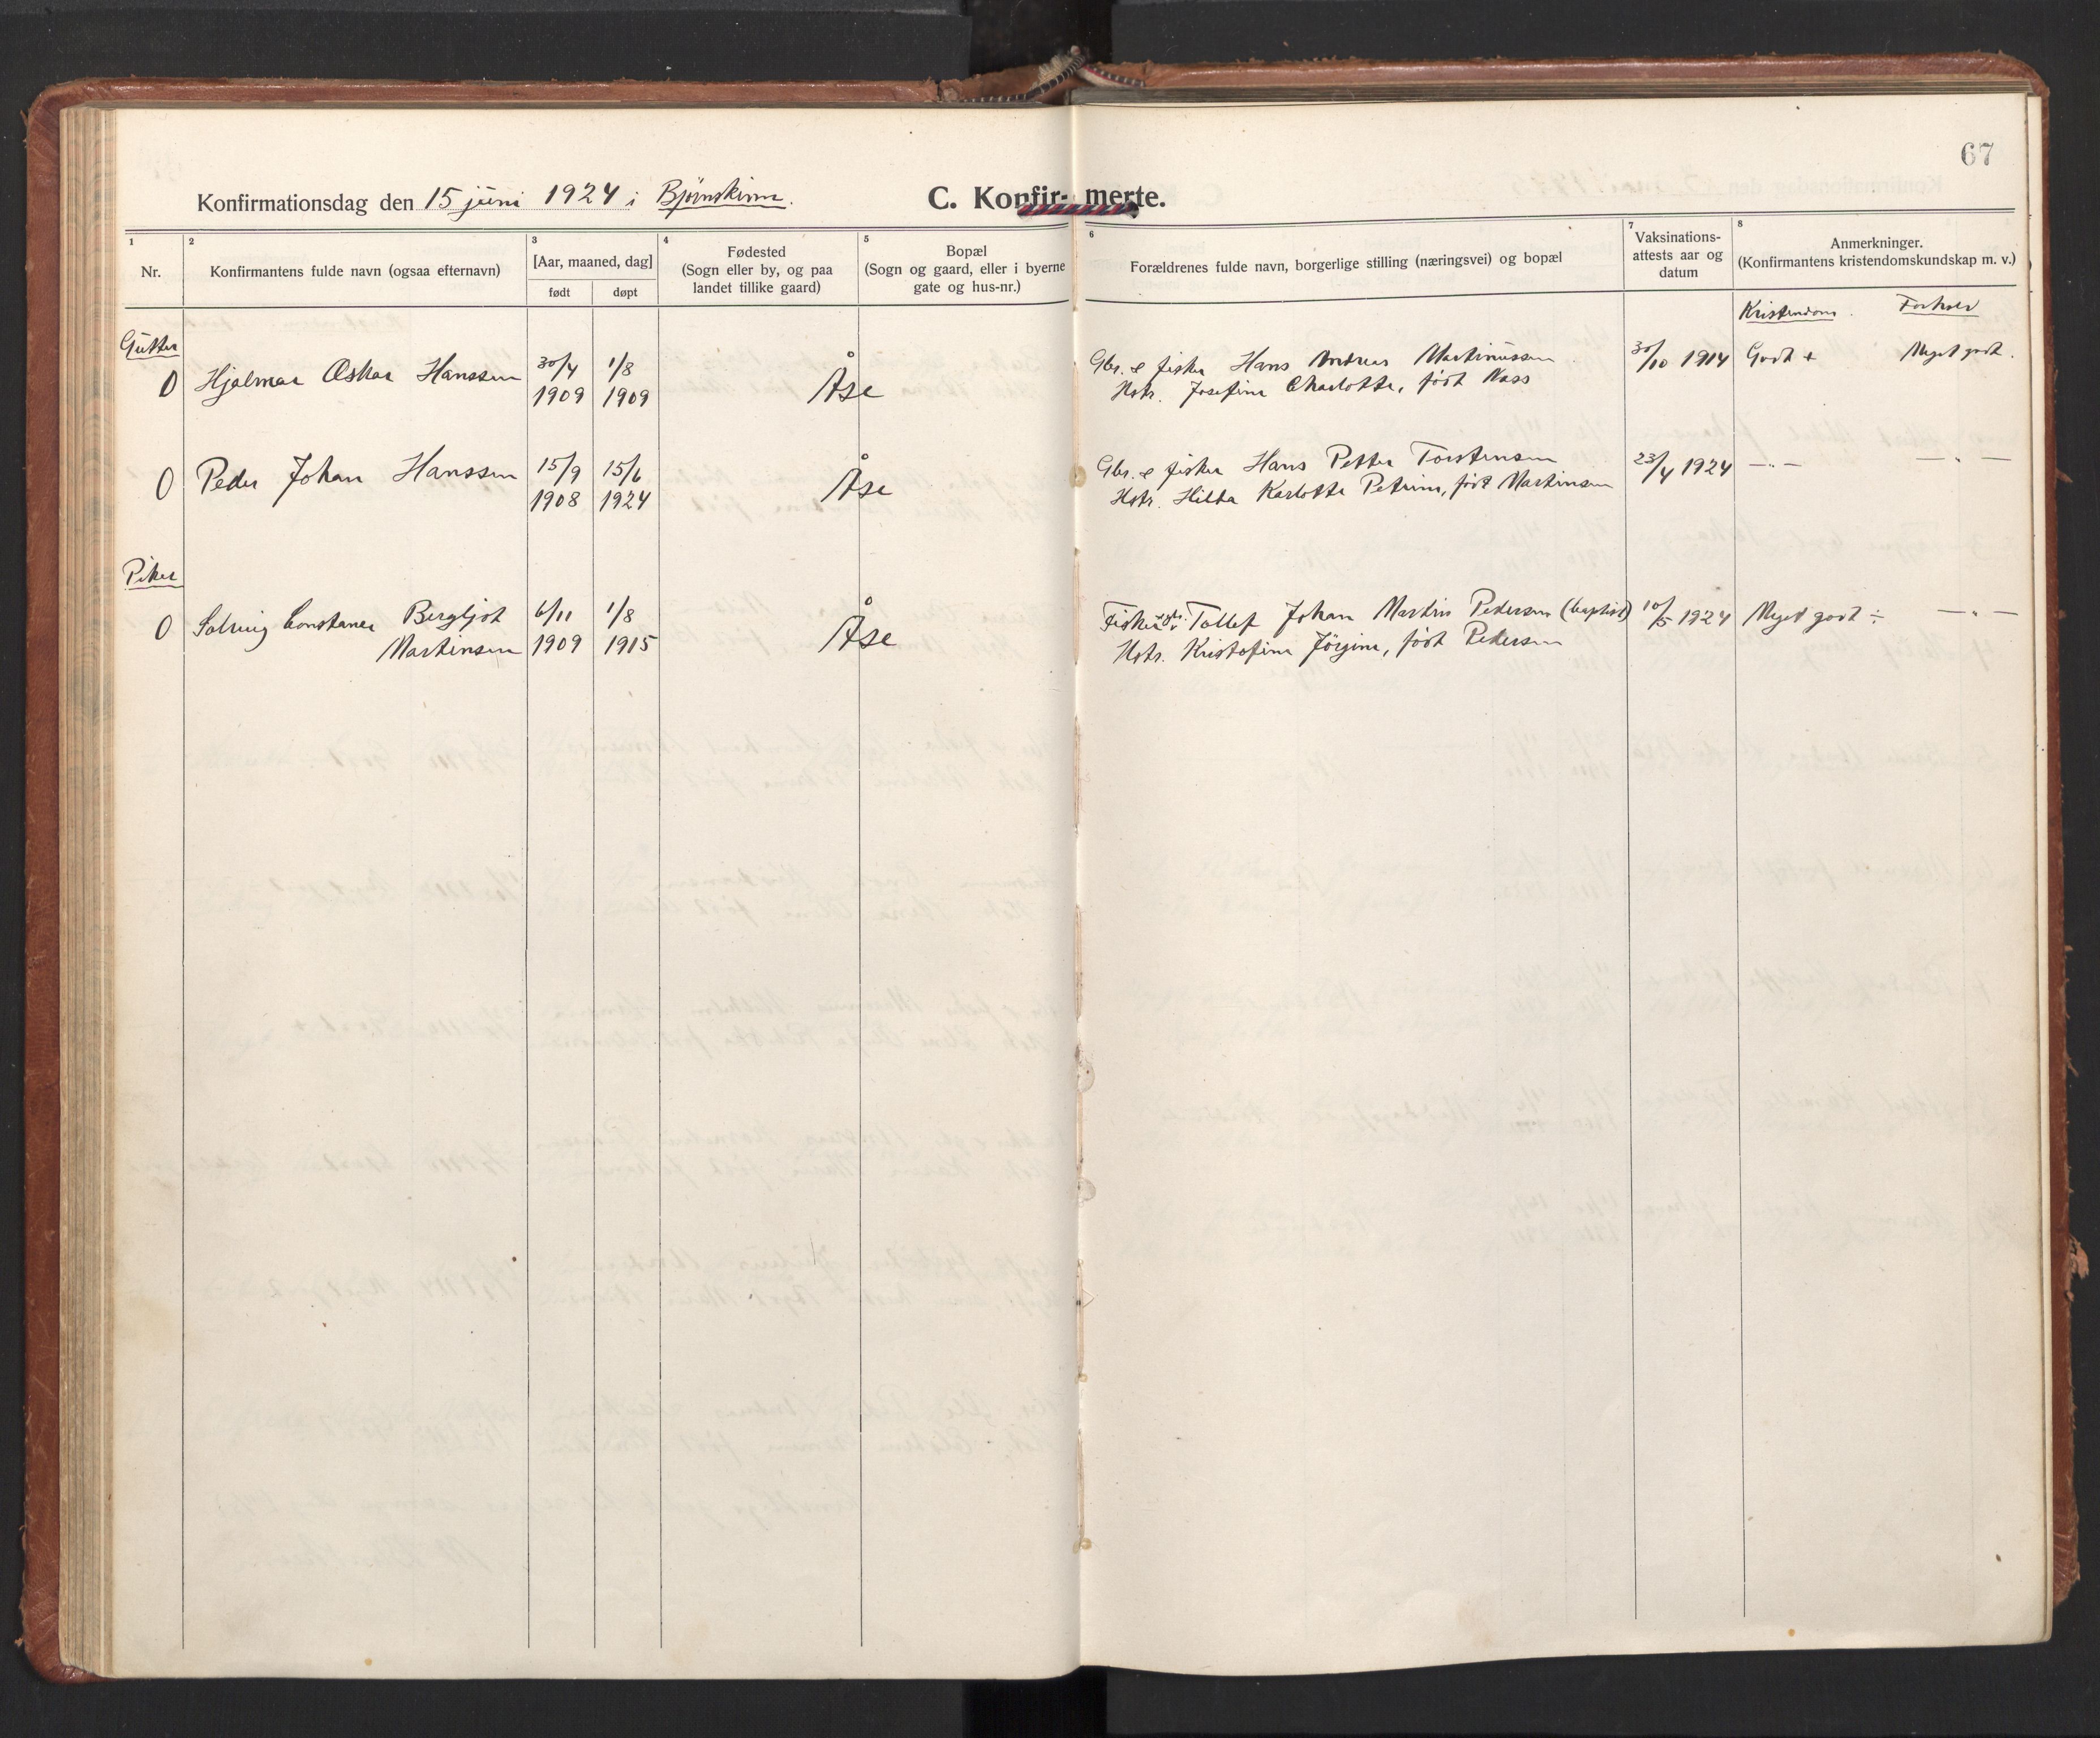 67
Konfirmationsdag den 15 juni 1924 i Bjørnskinn.
C. Konfirmerte.
1 2 3 4 5 6 7 8
Nr.
Konfirmantens fulde navn (ogsaa efternavn)
[Aar, maaned, dag]
født døpt
Fødested
(Sogn eller by, og paa
landet tillike gaard)
Bopæl
(Sogn og gaard, eller i byerne
gate og hus-nr.)
Forældrenes fulde navn, borgerlige stilling (næringsvei) og bopæl
Vaksinations-
attests aar og
datum
Anmerkninger.
(Konfirmantens kristendomskundskap m. v.)
Kristendom. Forhold
Gutter
0 Hjalmar Oskar Hanssen 30/4 1909 1/8 1909 Åse
Gbr. & fisker Hans Andreas Martinussen 30/10 1914 Godt + Meget godt.
Hstr. Josefine Charlotte, født Nass
0 Peder Johan Hanssen 15/9 1908 15/6 1924 Åse
Gbr. & fisker Hans Petter Torstensen 23/4 1924 — " — — " —
Hstr. Hilda Karlotte Petrine, født Martinsen
Piker
0 Solveig Constance Bergljot 6/11 1909 1/8 1915 Åse
Martinsen
Fisker & gbr. Tollef Johan Martin Pedersen (baptist) 10/5 1924 Meget godt ÷ — " —
Hstr. Kristofine Jørgine, født Pedersen